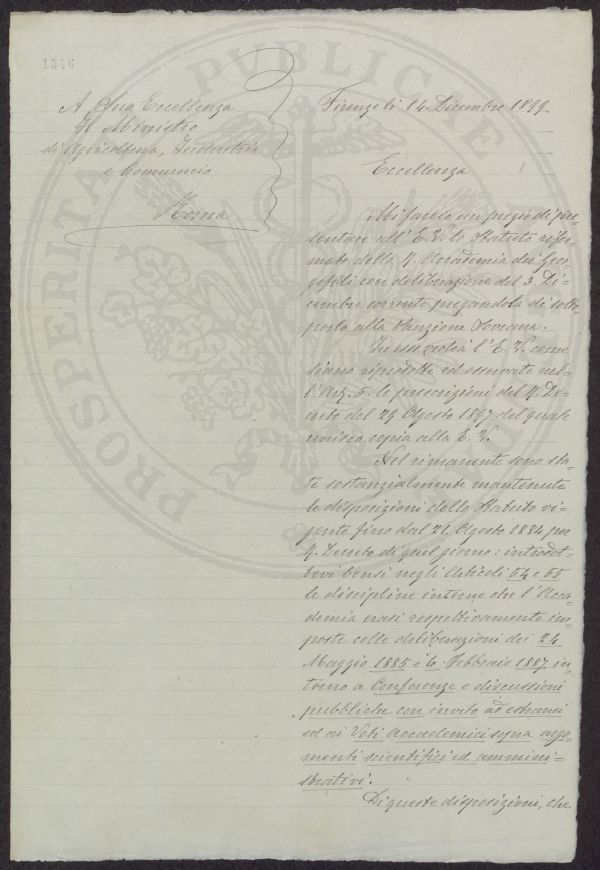 1346
A Sua Eccellenza
Il Ministro
di Agricoltura, Industria
e Commercio
Roma
Firenze li 14 Dicembre 1899
Eccellenza
Mi faccio un pregio di pre=
sentare all' E. V. lo Statuto rifor=
mato della R. Accademia dei Geor=
gofili con deliberazione del 3 Di=
cembre corrente pregandola di sotto=
porlo alla Sanzione Sovrana.
In esso vedrà l' E. V. come
siano riprodotte ed osservate nel=
l' Art. 5. le prescrizioni del R. De=
creto del 29 Agosto 1897 del quale
unisco copia alla E. V.
Nel rimanente sono sta=
te sostanzialmente mantenute
le disposizioni dello Statuto vi=
gente fino dal 21 Agosto 1884 per
R. Decreto di quel giorno: introdot=
tevi bensì negli Articoli 54 e 55
le discipline interne che l' Acca=
demia erasi respettivamente im=
poste colle deliberazioni dei 24
Maggio 1885 e 6 Febbraio 1887 in=
torno a Conferenze e discussioni
pubbliche con invito ad estranei
ed ai Voti Accademici sopra argo=
menti scientifici ed ammini=
strativi.
Di queste disposizioni, che
PROSPERITA PVBLICAE